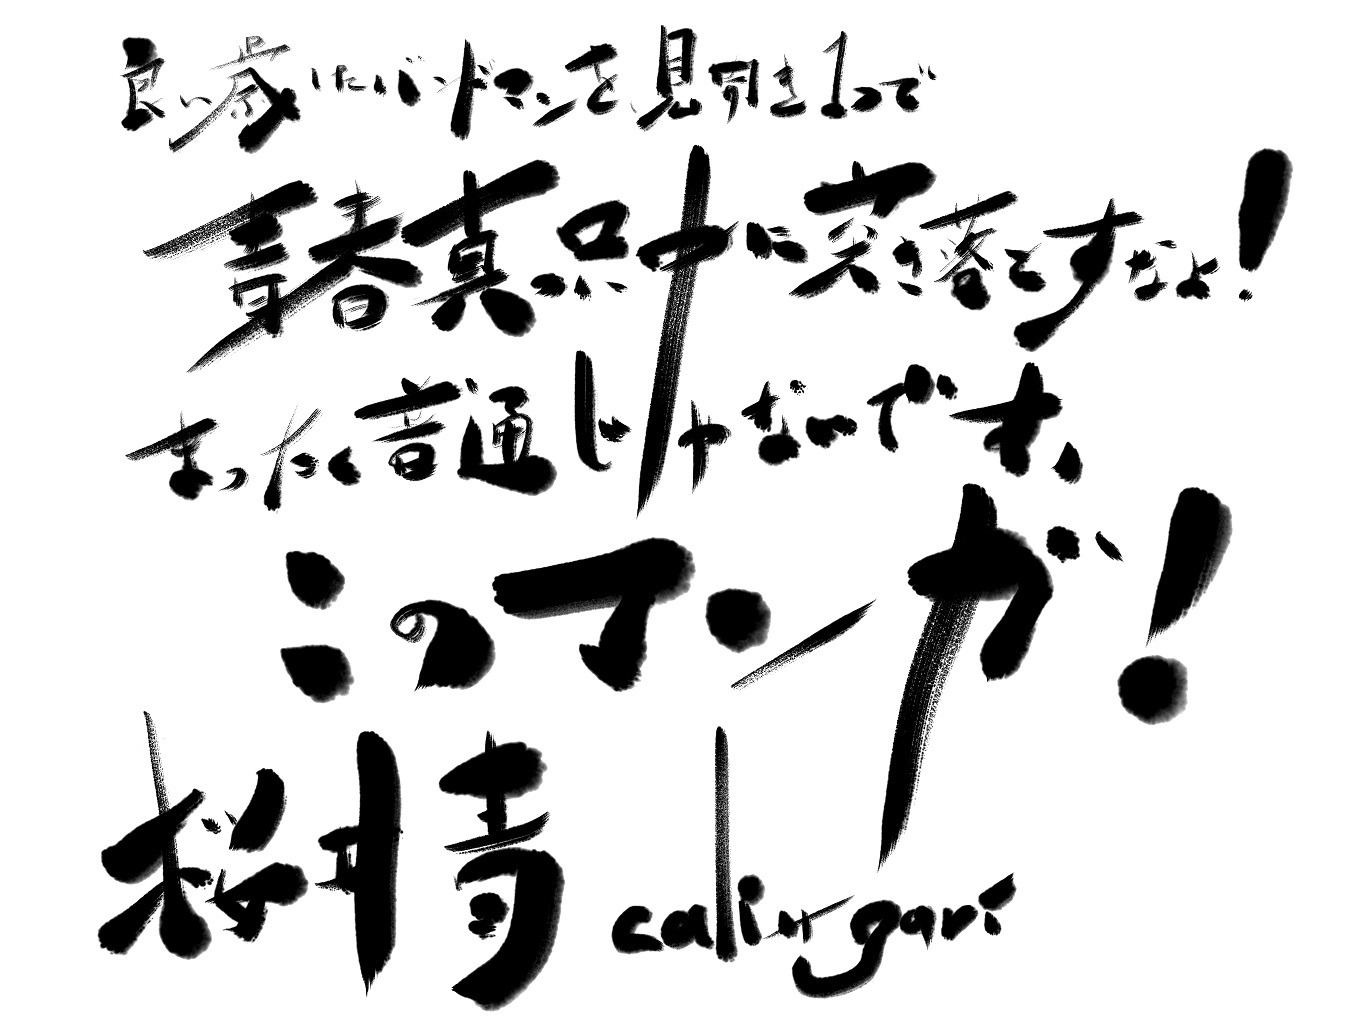 良い歳したバンドマンを、見開き1つで
青春真っ只中に突き落とすなよ!
まったく普通じゃないです、
このマンガ!
桜井青 cali≠gari